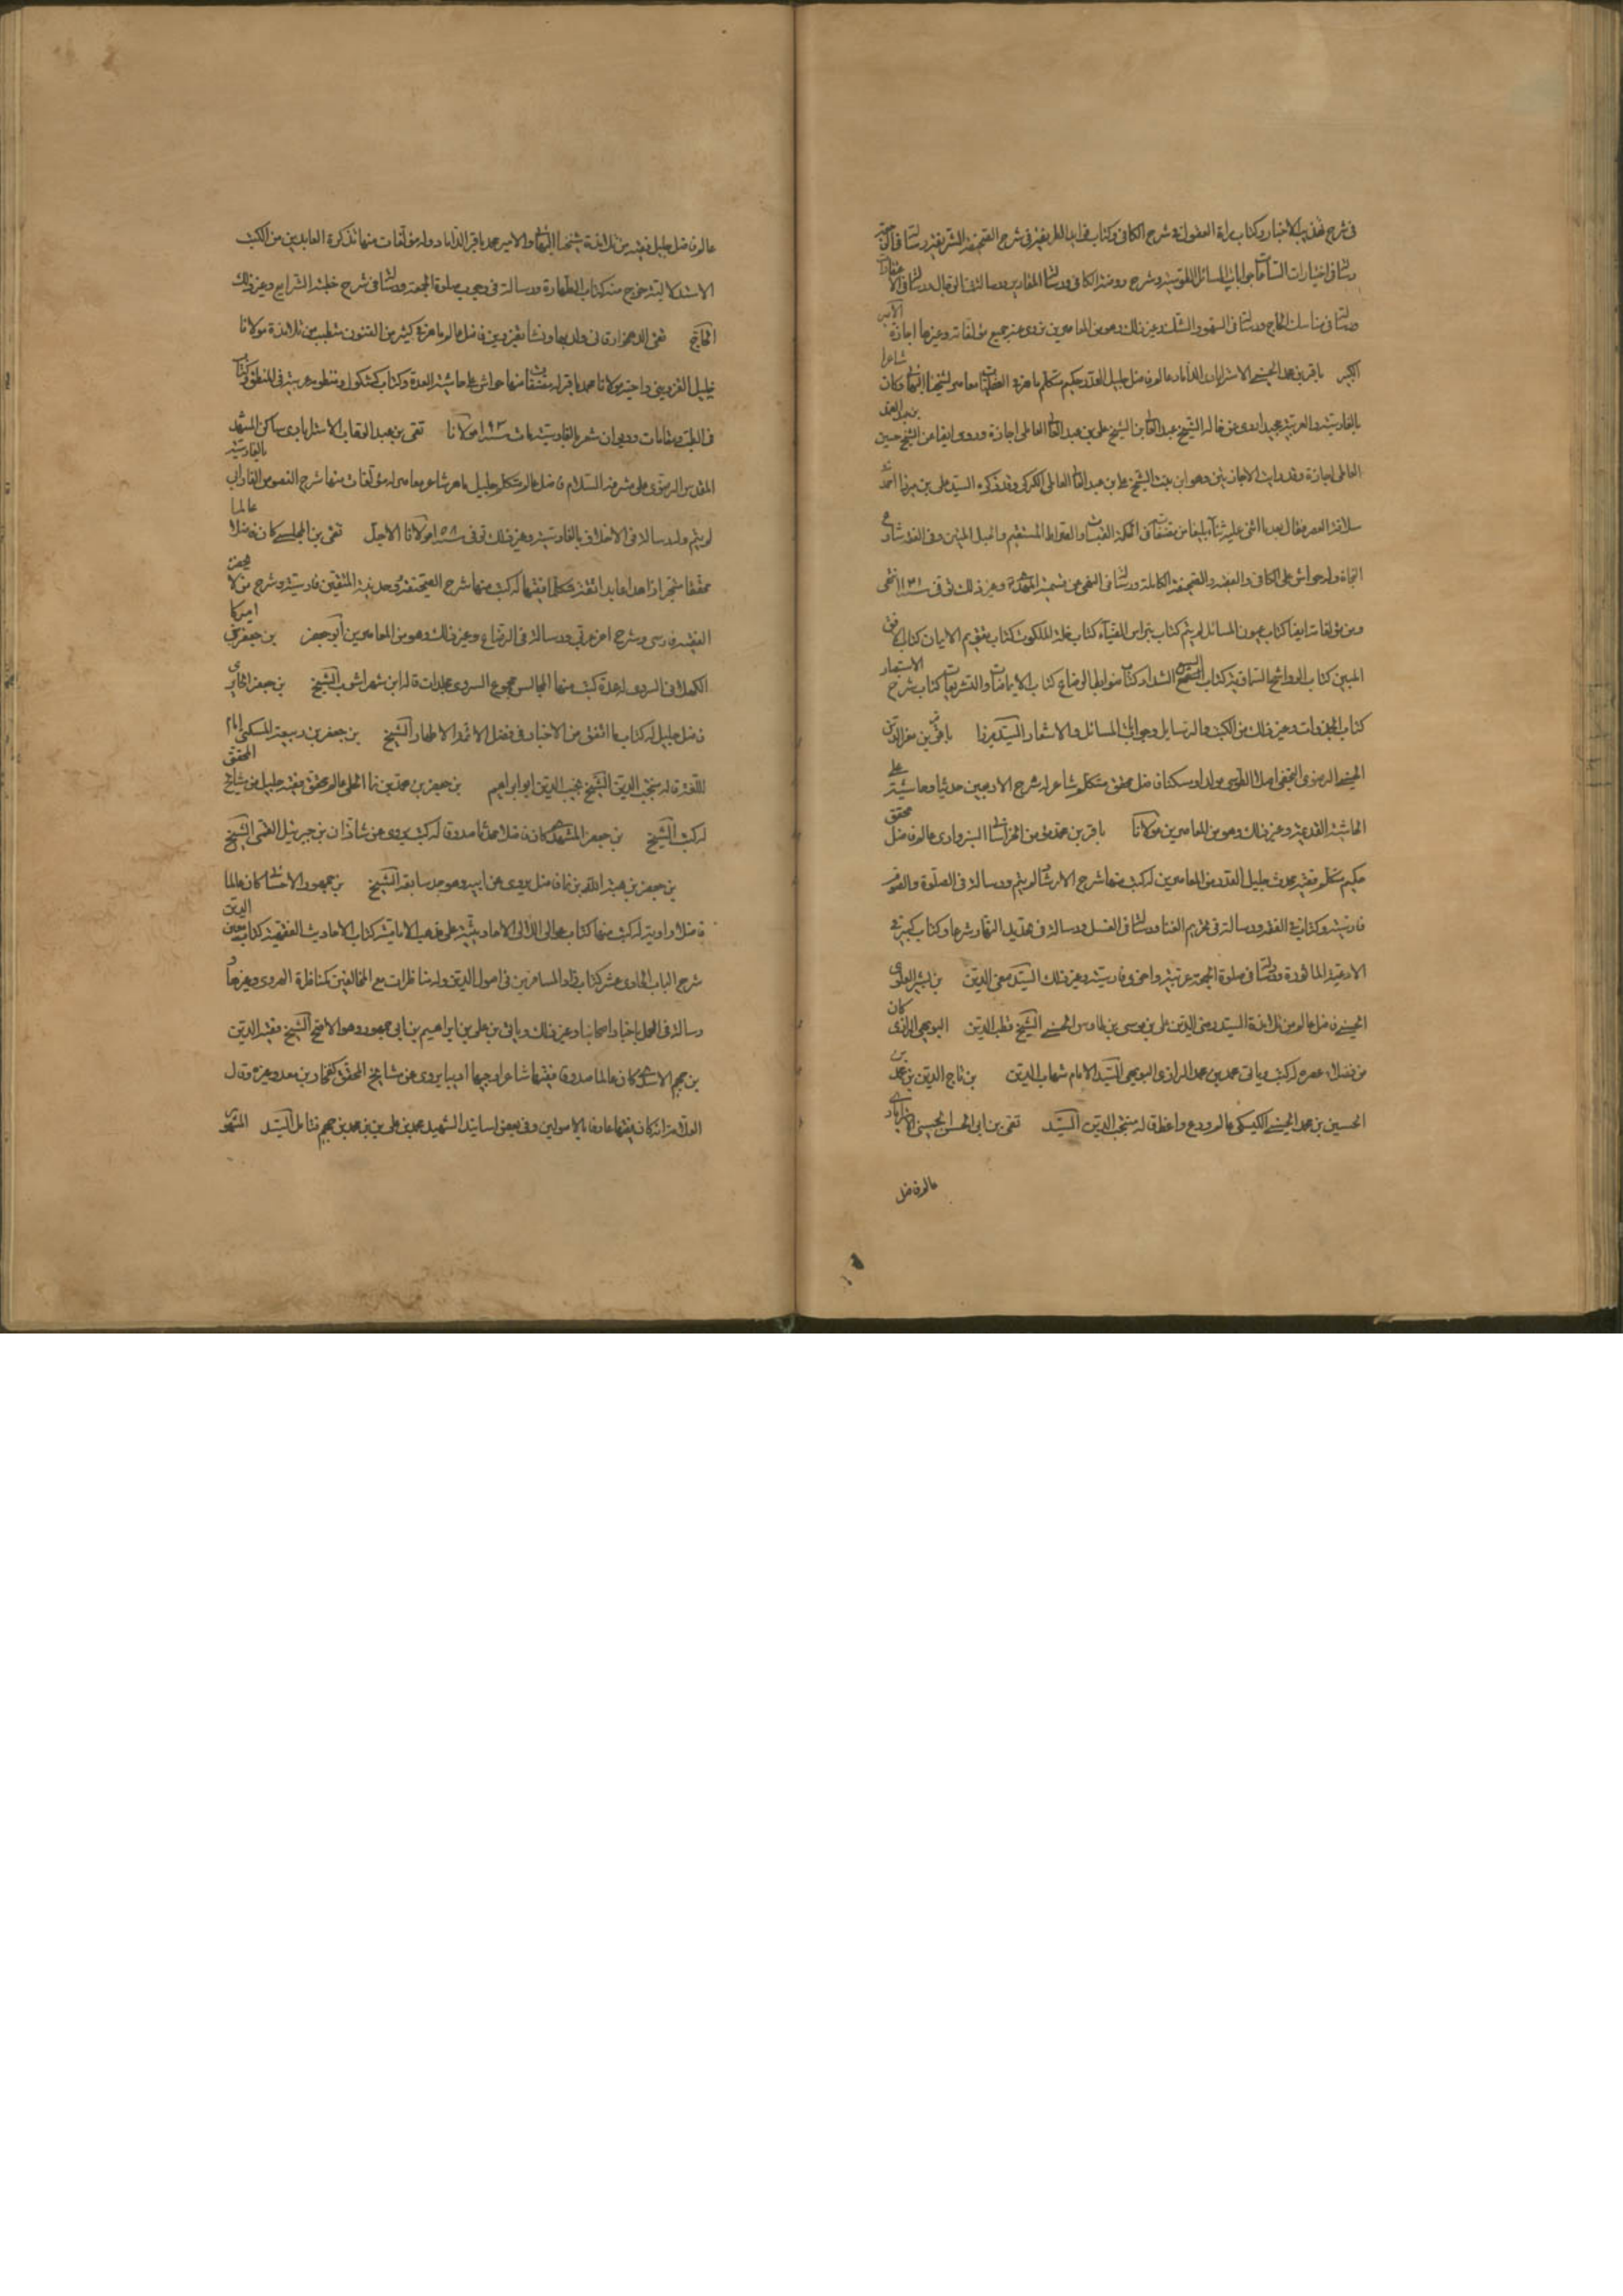 فى شرح تهذيب الاخبار وكتاب مراة العقول فى شرح الكافى وكتاب فرايد الطريفة فى شرح الصحيفة الشريفة ورسالة فى الرجعة
ورسالة فى اختيارات الساعات وجوابات المسائل الطوسية وشرح روضة الكافى ورسالة المقادير ورسالة فى الرجال ورسالة فى الاعتقادات
ورسالة فى مناسك الحاج ورسالة فى السهو والشك وغير ذلك وهو من المعاصرين نروى عنه جميع مؤلفاته وغيرها اجازة الامير
الكبير باقر بن محمد الحسينى الاسترابادى الداماد عالم فاضل جليل القدر حكيم متكلم ماهر فى العقليات معاصر لشيخنا البهائى وكان شاعرا
بالفارسية والعربية مجيدا روى عن خاله الشيخ عبد العالى بن الشيخ على بن عبد العالى العاملى اجازة وروى ايضا عن الشيخ حسين بن عبد الصمد
العاملى اجازة وقد رايت الاجازتين وهو ابن بنت الشيخ على بن عبد العالى العاملى الكركى وقد ذكره السيد على بن ميرزا احمد فى
سلافة العصر فقال بعدما اثنى عليه ثناء بليغا من مصنفاته فى الحكمة القبسات والصراط المستقيم والحبل المتين وفى الفقه شارع
النجاة وله حواش على الكافى والفقيه والصحيفة الكاملة ورسالة فى النهى عن تسمية المهدى وغير ذلك توفى سنة انتهى
ومن مؤلفاته ايضا كتاب عيون المسائل لم يتم كتاب نبراس الضياء كتاب خلسة الملكوت كتاب تقويم الايمان كتاب الافق
المبين كتاب الرواشح السماوية كتاب السبع الشداد كتاب ضوابط الرضاع كتاب الايماضات والتشريقات كتاب شرح الاستبصار
كتاب الجذوات وغير ذلك من الكتب والرسايل وجوابات المسائل والاشعار السيد ميرزا باقر بن معز الدين
الحسينى الرضوى النجفى اصلا الطوسى مولدا ومسكنا فاضل محقق متكلم شاعر له شرح الاربعين حديثا وحاشية على
الحاشية القديمة وغير ذلك وهو من المعاصرين مولانا باقر بن محمد مؤمن الخراسانى السبزوارى عالم فاضل محقق
حكيم متكلم فقيه محدث جليل القدر من المعاصرين له كتب منها شرح الارشاد لم يتم ورسالة فى الصلوة والصوم
فارسية وكتاب فى الفقه ورسالة فى تحريم الغنا ورسالة فى الغسل ورسالة فى تحديد النهار شرعا وكتاب كبير فى
الادعية الماثورة ورسالتان فى صلوة الجمعة عربية واخرى فارسية وغير ذلك السيد صفى الدين بن بشير العلوى
الحسينى فاضل عالم من تلامذة السيد رضى الدين على بن موسى بن طاوس الحسينى الشيخ قطب الدين البويهى الرازى كان
من فضلاء عصره له كتب وياتى محمد بن محمد الرازى البويهى السيد الامام شهاب الدين بن تاج الدين بن محمد بن
الحسين بن محمد الحسينى الكيسكى عالم ورع واعظ قاله منتجب الدين السيد تقى بن ابى الحسن الحسينى الاسترابادى
عالم فاضل
عالم فاضل جليل فقيه من تلامذة شيخنا البهائى والامير محمد باقر الداماد وله مؤلفات منها تذكرة العابدين من الكتب
الاستدلالية خرج منه كتاب الطهارة ورسالة فى وجوب صلوة الجمعة ورسالة فى شرح خطبة الشرايع وغير ذلك
الحاج تقى الدهخوارقانى ولد بها ونشا بقزوين فاضل عالم ماهر فى كثير من الفنون متطبب من تلامذة مولانا
خليل القزوينى واخيه مولانا محمد باقر له مصنفات منها حواش على حاشية العدة وكتاب كشكول ومنظومة عربية فى المنطق وكتاب
فى الطب ومقامات وديوان شعر بالفارسية مات سنة ١٠٩٣ مولانا تقى بن عبد الوهاب الاسترابادى ساكن المشهد
المقدس الرضوى على مشرفه السلام فاضل عالم متكلم جليل ماهر شاعر معاصر له مؤلفات منها شرح الفصوص للفارابى بالفارسية
لم يتم وله رسالة فى الاخلاق بالفارسية وغير ذلك توفى سنة ١٠٥٨ مولانا الاجل تقى بن المجلسى كان فاضلا عالما
محققا متبحرا زاهدا عابدا ثقة متكلما فقيها له كتب منها شرح الصحيفة وحديقة المتقين فارسية وشرح من لا يحضره
الفقيه فارسى وشرح اخر عربى ورسالة فى الرضاع وغير ذلك وهو من المعاصرين ابو جعفر بن جعفر اميركا
السروى له عدة كتب منها المجالس مجموع السروى مجلدات قاله ابن شهراشوب الشيخ بن جعفر الحايرى
فاضل جليل له كتاب ما اتفق من الاخبار فى فضل الائمة الاطهار الشيخ بن جعفر بن ربيعة المسكنى امام
اللغة قاله منتجب الدين الشيخ نجيب الدين ابو ابراهيم بن جعفر بن محمد بن نما الحلى عالم محقق فقيه جليل من مشايخ المحقق
له كتب الشيخ بن جعفر المشهدى كان فاضلا محدثا صدوقا له كتب يروى عن شاذان بن جبرئيل القمى الشيخ
بن جعفر بن هبة الله بن نما فاضل يروى عن ابيه وهو جد سابقه الشيخ بن جمهور الاحسائى كان عالما
فاضلا راوية له كتب منها كتاب عوالى اللئالى الحديثية على مذهب الامامية كتاب الاحاديث الفقهية كتاب معين
شرح الباب الحادى عشر كتاب زاد المسافرين فى اصول الدين وله مناظرات مع المخالفين كمناظرة الهروى وغيرها و
رسالة فى العمل باخبار اصحابنا وغير ذلك وياتى بن على بن ابراهيم بن ابى جمهور وهو الاصح الشيخ مفيد الدين
بن جهم الاسدى كان عالما صدوقا فقيها شاعرا وجيها اديبا يروى عن مشايخ المحقق كفخار بن معد وغيره وقال
العلامة انه كان فقيها عارفا بالاصولين وفى بعض اسانيد الشهيد محمد بن على بن محمد بن جهم فتامل السيد المشهور